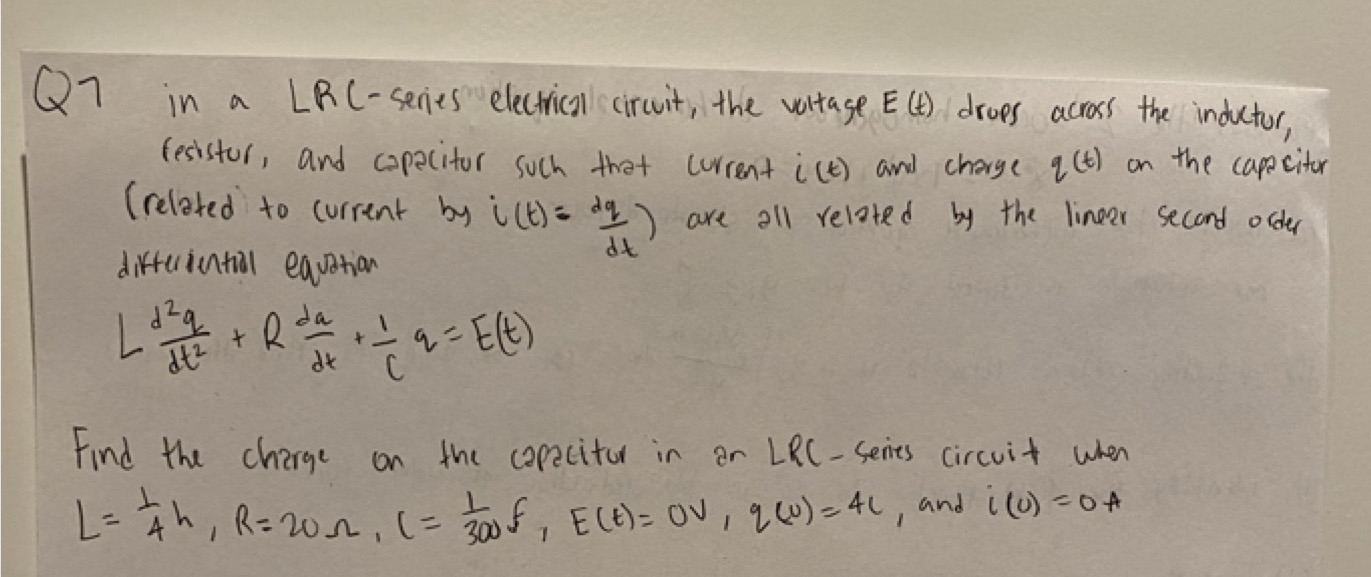 Q7 in a LRC-series electrical circuit, the voltage E(t) drops across the inductor,
resistor, and capacitor such that current i(t) and charge q(t) on the capacitor
(related to current by i(t) = dq/dt) are all related by the linear second order
differiential equation
L d²q/dt² + R dq/dt + 1/C q = E(t)
Find the charge on the capacitor in an LRC-series circuit when
L = 1/4 h, R = 20 Ω, C = 1/300 f, E(t) = 0V, q(0) = 4C, and i(0) = 0A